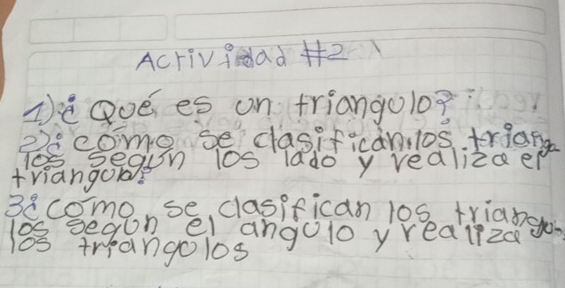 Actividad #2
1)¿Qué es un triangulo?
2)¿como se clasifican los triangu
los según los lado y realiza el
triangulo?
3¿como se clasifican los triangu-
los segun el angulo y realiza
los triangulos